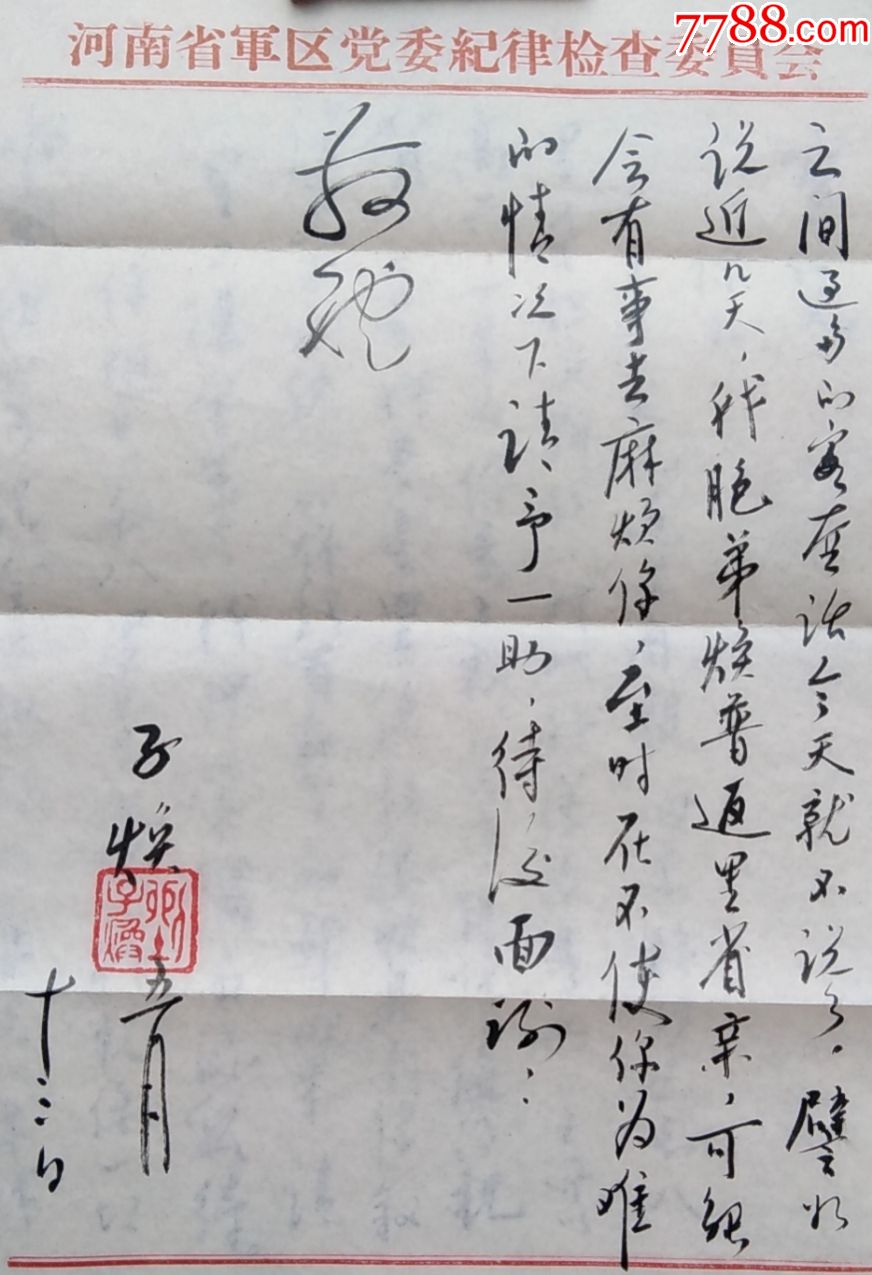 7788.com
河南省軍区党委紀律检查委員会
之间过多的客套话今天就不说了。譬如
说近几天，我胞弟焕普返里省亲，可能
会有事去麻烦你，至时在不使你为难
的情况下请予一助，待后面谢：
敬礼
子焕
五月
十三日